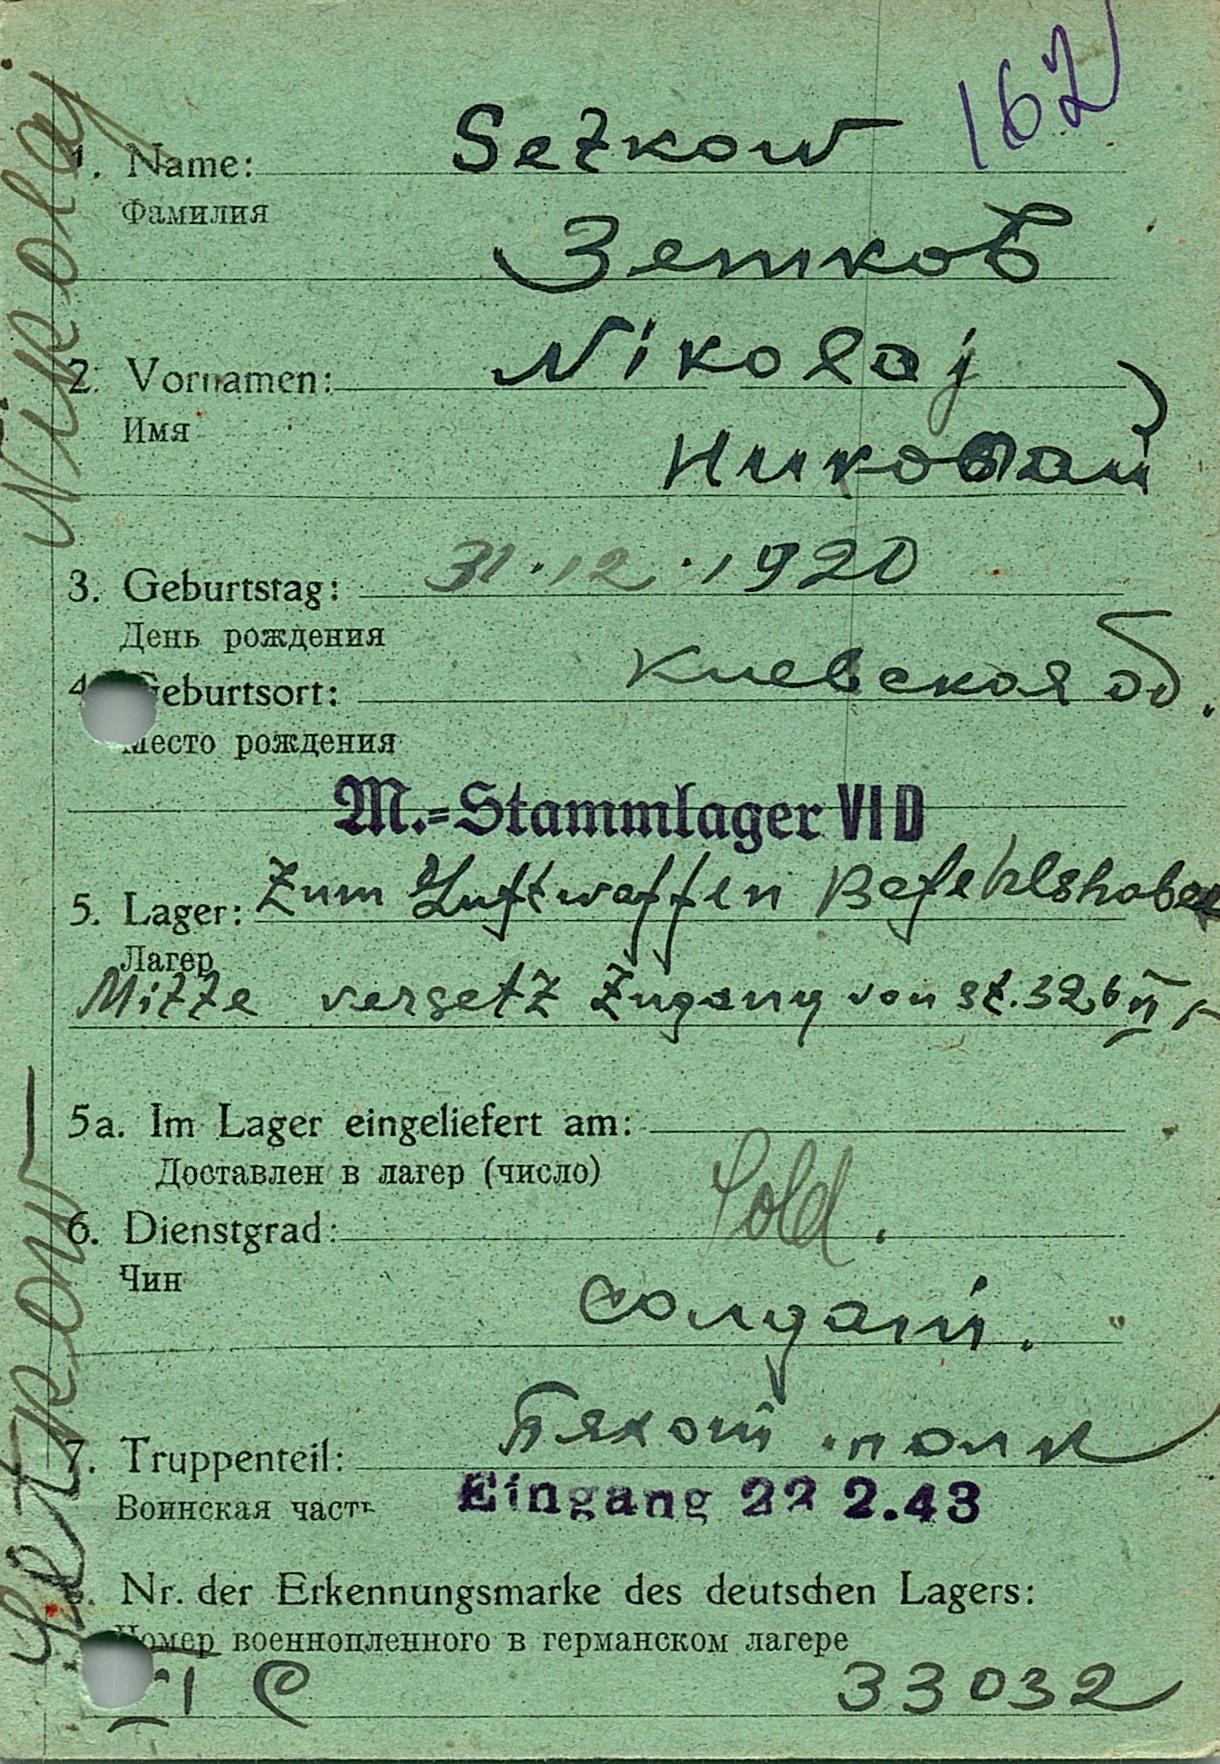 162
1. Name: Setkow
Фамилия
Зетков
2. Vornamen: Nikolaj
Имя
Николай
3. Geburtstag: 31.12.1920
День рождения
Киевская об.
4. Geburtsort:
Место рождения
M.=Stammlager VI D
5. Lager: Zum Luftwaffen Befehlshaber
Лагер
Mitte versetzt Zugang von St. 326 VI
5a. Im Lager eingeliefert am:
Доставлен в лагер (число)
6. Dienstgrad: Sold.
Чин
Солдат.
7. Truppenteil: Пяхот. полк
Воинская часть
Eingang 22 2.43
8. Nr. der Erkennungsmarke des deutschen Lagers:
Номер военнопленного в германском лагере
VI C 33032
Setkow Nikolaj